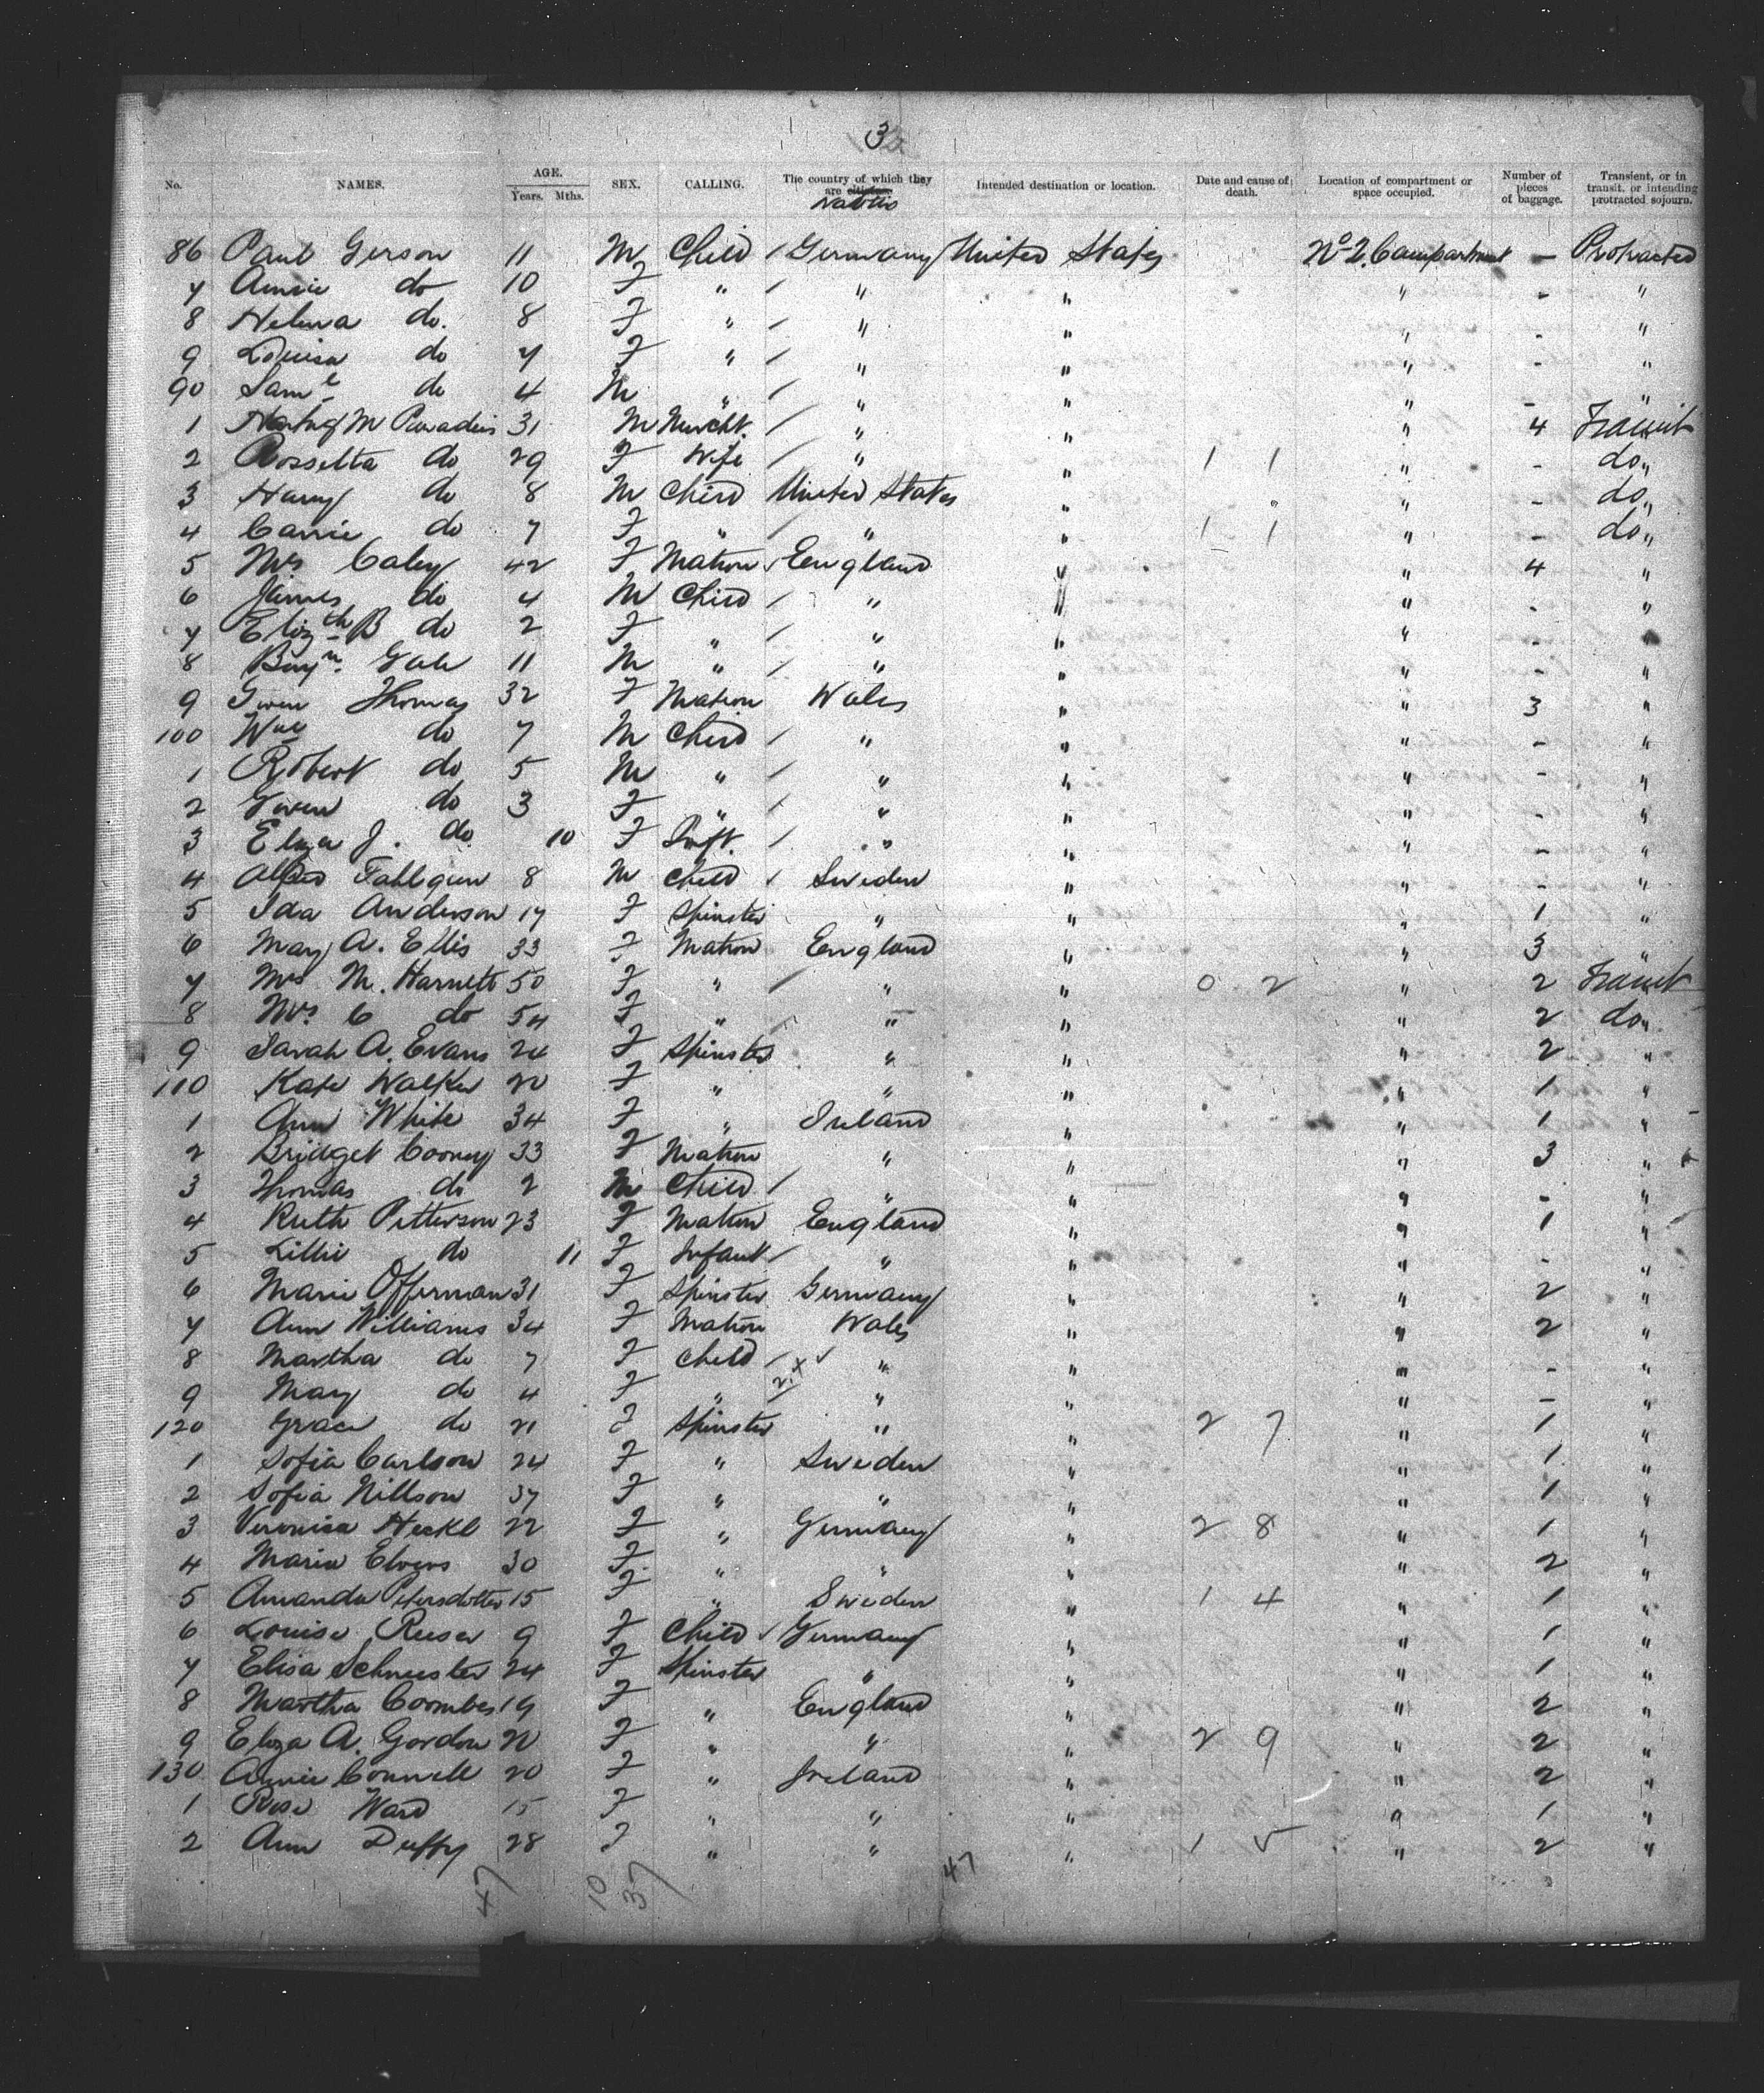 3
No. NAMES. AGE. Years. Mths. SEX. CALLING. The country of which they are citizens Natives Intended destination or location. Date and cause of death. Location of compartment or space occupied. Number of pieces of baggage. Transient, or in transit, or intending protracted sojourn.
86 Paul Gerson 11 M Child / Germany United States No 2 Compartment - Protracted
7 Annie do 10 F " / " " " - "
8 Helena do. 8 F " / " " " - "
9 Louisa do 7 F " / " " " - "
90 Saml do 4 M " / " " " - "
1 M 31 M Mercht. / " " " 4 Transit
2 Rossetta do 29 F Wife / " " 1 1 " - do "
3 Harry do 8 M Child United States " " - do "
4 Carrie do 7 F " / " " 1 1 " - do "
5 Mrs Caley 42 F Matron England " " 4 "
6 James do 4 M Child / " " " - "
7 Elizth B do 2 F " / " " " - "
8 Benjn. Gale 11 M " / " " " - "
9 Gwen Thomas 32 F Matron Wales " " 3 "
100 Wm do 7 M Child / " " " - "
1 Robert do 5 M " / " " " - "
2 Gwen do 3 F " / " " " - "
3 Eliza J. do 10 F Inft. / " " " - "
4 Alfred Fahlgren 8 M Child Sweden " " - "
5 Ida Anderson 17 F Spinster " " " 1 "
6 Mary A. Ellis 33 F Matron England " " 3 "
7 Mrs M. Harnett 50 F " / " " 0 2 " 2 Transit
8 Mrs C do 54 F " " " " 2 do "
9 Sarah A. Evans 24 F Spinster " " " 2 "
110 Kate Walker 20 F " " " " 1 "
1 Ann White 34 F " Ireland " " 1 "
2 Bridget Cooney 33 F Matron " " " 3 "
3 Thomas do 2 M Child / " " " - "
4 Ruth Pitterson 23 F Matron England " " 1 "
5 Lillie do 11 F Infant / " " " - "
6 Marie Offerman 31 F Spinster Germany " " 2 "
7 Ann Williams 34 F Matron Wales " " 2 "
8 Martha do 7 F Child / " " " - "
9 Mary do 4 F " / " " " - "
120 Grace do 21 F Spinster " " 2 7 " 1 "
1 Sofia Carlson 24 F " Sweden " " 1 "
2 Sofia Nillson 37 F " " " " 1 "
3 Veronica Heckl 22 F " Germany " 2 8 " 1 "
4 Maria Elvers 30 F. " " " " 2 "
5 Amanda Petersdotter 15 F " Sweden " 1 4 " 1 "
6 Louise Reeser 9 F Child Germany " " 1 "
7 Elisa Schneester 24 F Spinster " " " 1 "
8 Martha Coombes 19 F " England " " 2 "
9 Eliza A. Gordon 20 F " " " 2 9 " 2 "
130 Annie Connell 20 F " Ireland " " 2 "
1 Rose Ward 15 F " " " " 1 "
2 Ann Duffy 28 F " " " 1 5 " 2 "
47 10 37 47